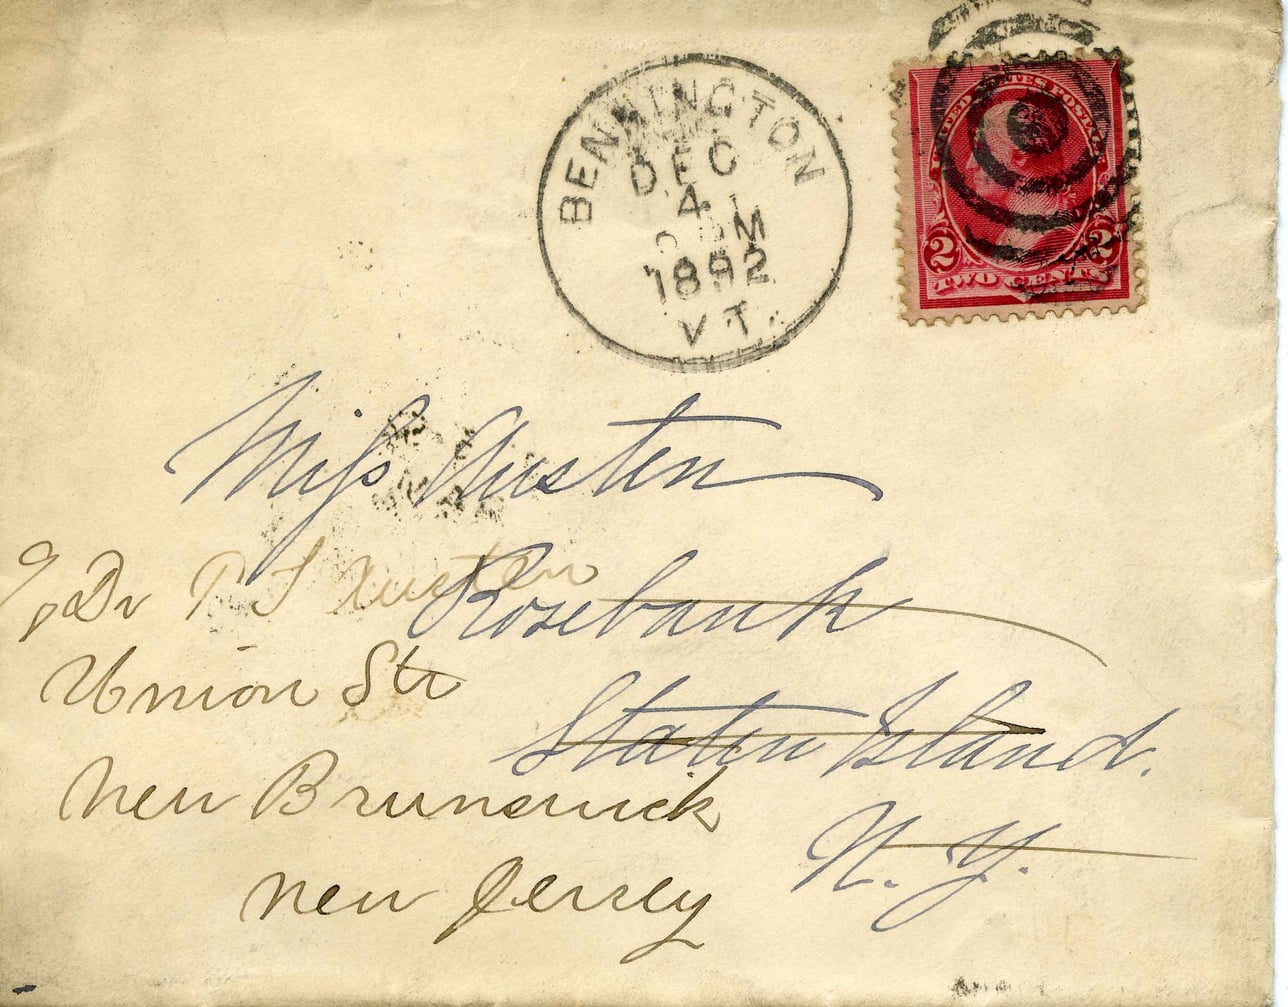 BENNINGTON
DEC
4
1892
VT.
UNITED STATES POSTAGE
2 2
TWO CENTS
Miss Austen
Rosebank
Staten Island.
N. Y.
c/o Dr P T Austen
Union Str
New Brunswick
New Jersey